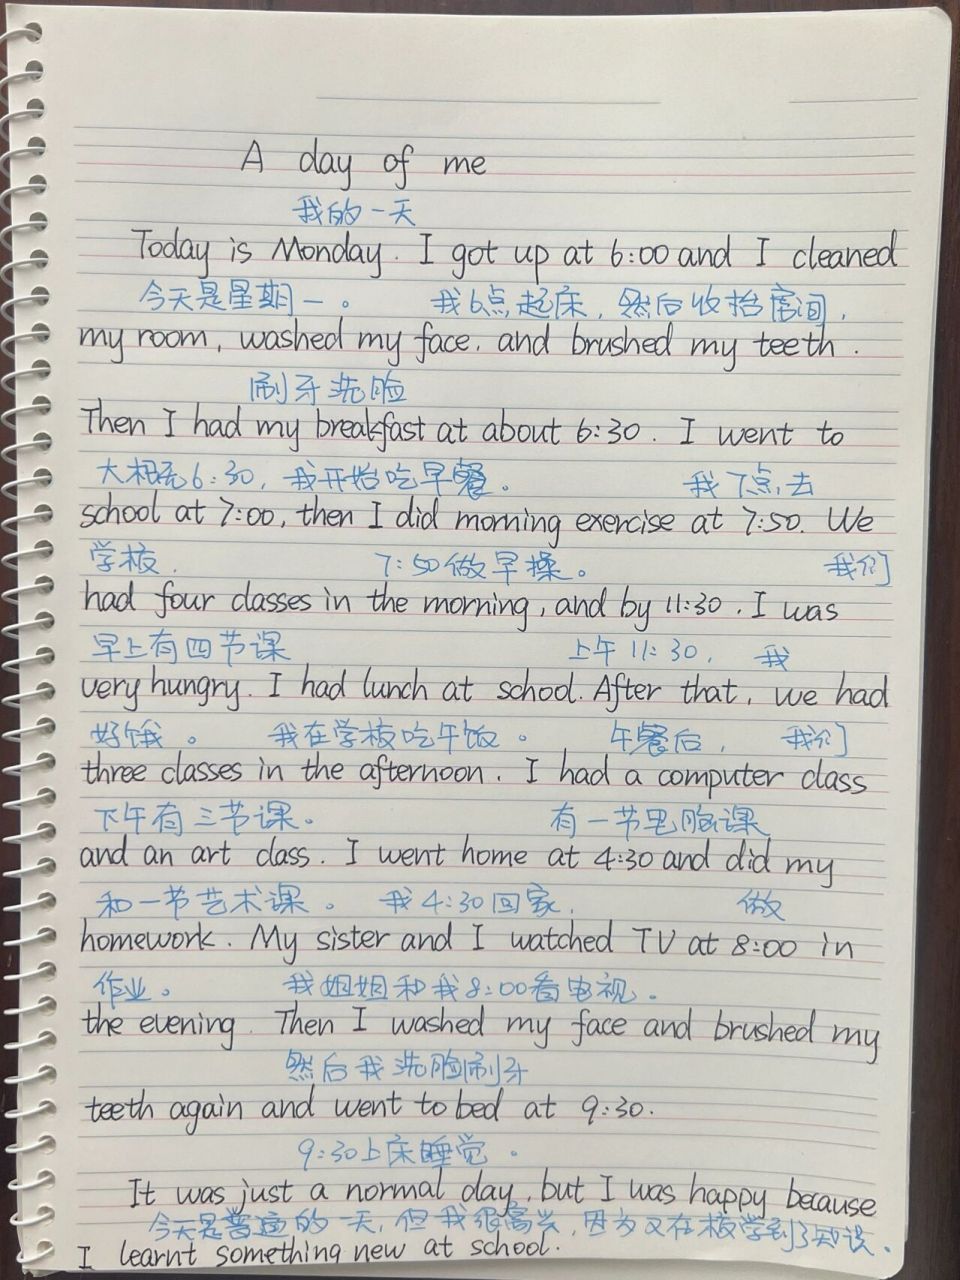 A day of me
我的一天
Today is Monday. I got up at 6:00 and I cleaned
今天是星期一。 我6点起床，然后收拾房间，
my room, washed my face, and brushed my teeth.
刷牙洗脸
Then I had my breakfast at about 6:30. I went to
大概6:30，我开始吃早餐。 我7点去
school at 7:00, then I did morning exercise at 7:50. We
学校， 7:50做早操。 我们
had four classes in the morning, and by 11:30. I was
早上有四节课 上午11:30， 我
very hungry. I had lunch at school. After that, we had
好饿。 我在学校吃午饭。 午餐后， 我们
three classes in the afternoon. I had a computer class
下午有三节课。 有一节电脑课
and an art class. I went home at 4:30 and did my
和一节艺术课。 我4:30回家， 做
homework. My sister and I watched TV at 8:00 in
作业。 我姐姐和我8:00看电视。
the evening. Then I washed my face and brushed my
然后我洗脸刷牙
teeth again and went to bed at 9:30.
9:30上床睡觉。
It was just a normal day, but I was happy because
今天是普通的一天，但我很高兴，因为又在校学到了知识。
I learnt something new at school.